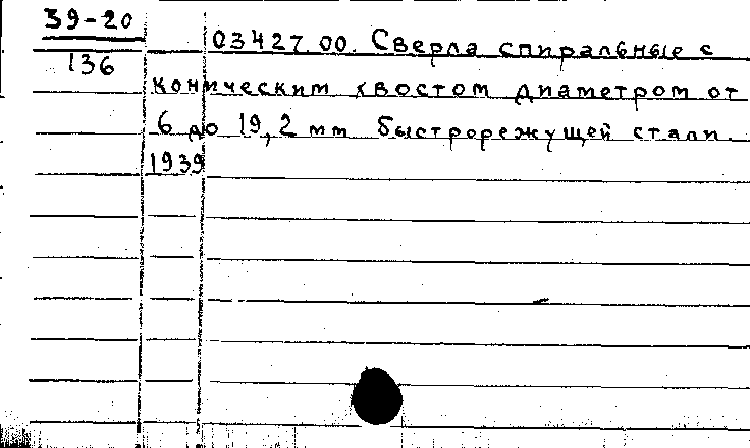 39-20
136
03427.00. Сверла спиральные с
коническим хвостом диаметром от
6 до 19,2 мм быстрорежущей стали
1939